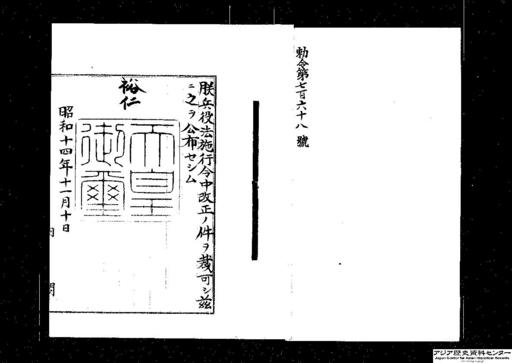 勅令第七百六十八號
朕兵役法施行令中改正ノ件ヲ裁可シ茲
ニ之ヲ公布セシム
裕仁
天皇
御璽
昭和十四年十一月十日
内閣
アジア歴史資料センター
Japan Center for Asian Historical Records